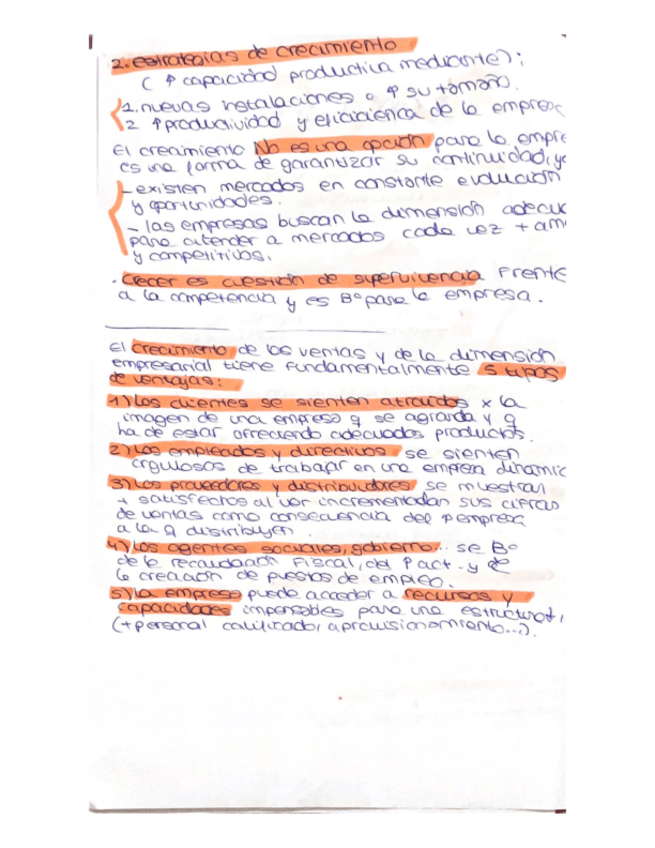 2. estrategias de crecimiento
( ↑ capacidad productiva mediante):
1. nuevas instalaciones o ↑ su tamaño.
2 ↑ productividad y eficiencia de la empresa
El crecimiento No es una opción para la empre
es una forma de garantizar su continuidad, ya
- existen mercados en constante evolución
y oportunidades.
- las empresas buscan la dimensión adecua
para atender a mercados cada vez + am
y competitivos.
· Crecer es cuestión de supervivencia Frente
a la competencia y es Bº para la empresa.
El crecimiento de las ventas y de la dimensión
empresarial tiene fundamentalmente 5 tipos
de ventajas:
1) Los clientes se sienten atraídos x la
imagen de una empresa q se agranda y q
ha de estar ofreciendo adecuados productos.
2) Los empleados y directivos se sienten
orgullosos de trabajar en una empresa dinámic
3) Los proveedores y distribuidores se muestran
+ satisfechos al ver incrementadas sus cifras
de ventas como consecuencia del empresa
a la q distribuyen.
4) Los agentes sociales, gobierno.. se Bº
de la recaudación Fiscal, del Pact. y de
la creación de puestos de empleo.
5) La empresa puede acceder a recursos y
capacidades impensables para una estructura
(+ personal cualificado, aprovisionamiento...).